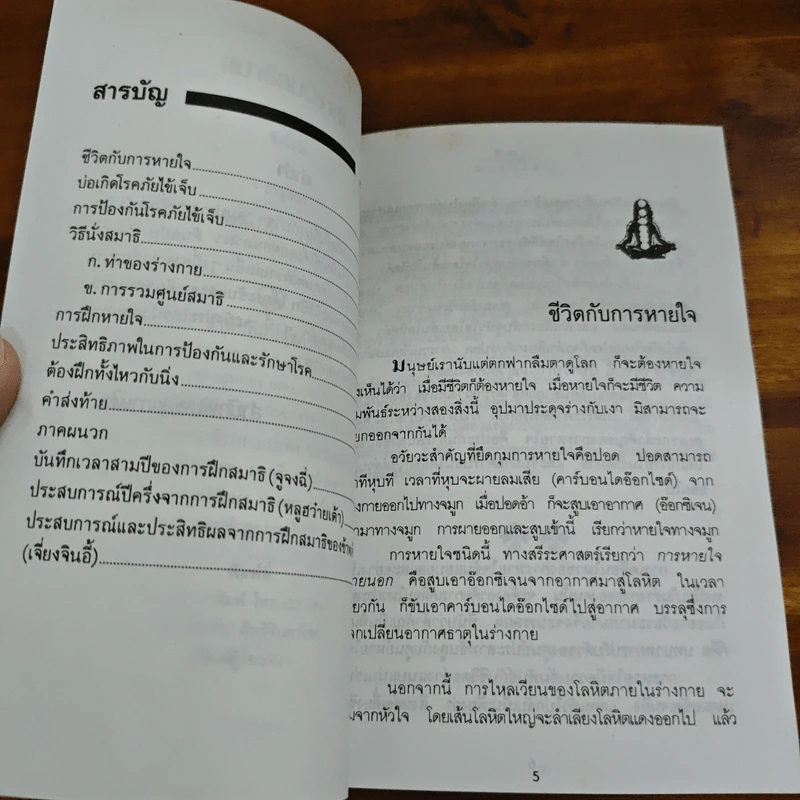 สารบัญ
ชีวิตกับการหายใจ
บ่อเกิดโรคภัยไข้เจ็บ
การป้องกันโรคภัยไข้เจ็บ
วิธีนั่งสมาธิ
ก. ท่าของร่างกาย
ข. การรวมศูนย์สมาธิ
การฝึกหายใจ
ประสิทธิภาพในการป้องกันและรักษาโรค
ต้องฝึกทั้งไหวกับนิ่ง
คำส่งท้าย
ภาคผนวก
บันทึกเวลาสามปีของการฝึกสมาธิ (จูจงฉี่)
ประสบการณ์ปีครึ่งจากการฝึกสมาธิ (หลูฮว่ายเต้า)
ประสบการณ์และประสิทธิผลจากการฝึกสมาธิของ
(เจี่ยงจินอี้)
ชีวิตกับการหายใจ
มนุษย์เรานับแต่ตกฟากลืมตาดูโลก ก็จะต้องหายใจ
งเห็นได้ว่า เมื่อมีชีวิตก็ต้องหายใจ เมื่อหายใจก็จะมีชีวิต ความ
มพันธ์ระหว่างสองสิ่งนี้ อุปมาประดุจร่างกับเงา มิสามารถจะ
ยกออกจากกันได้
อวัยวะสำคัญที่ยึดกุมการหายใจคือปอด ปอดสามารถ
าที่หุบที่ เวลาที่หุบจะผายลมเสีย (คาร์บอนไดอ๊อกไซด์) จาก
งกายออกไปทางจมูก เมื่อปอดอ้า ก็จะสูบเอาอากาศ (อ๊อกซิเจน)
ามาทางจมูก การผายออกและสูบเข้านี้ เรียกว่าหายใจทางจมูก
การหายใจชนิดนี้ ทางสรีระศาสตร์เรียกว่า การหายใจ
ายนอก คือสูบเอาอ๊อกซิเจนจากอากาศมาสู่โลหิต ในเวลา
ียวกัน ก็ขับเอาคาร์บอนไดอ๊อกไซด์ไปสู่อากาศ บรรลุซึ่งการ
ลกเปลี่ยนอากาศธาตุในร่างกาย
นอกจากนี้ การไหลเวียนของโลหิตภายในร่างกาย จะ
มจากหัวใจ โดยเส้นโลหิตใหญ่จะลำเลียงโลหิตแดงออกไป แล้ว
5